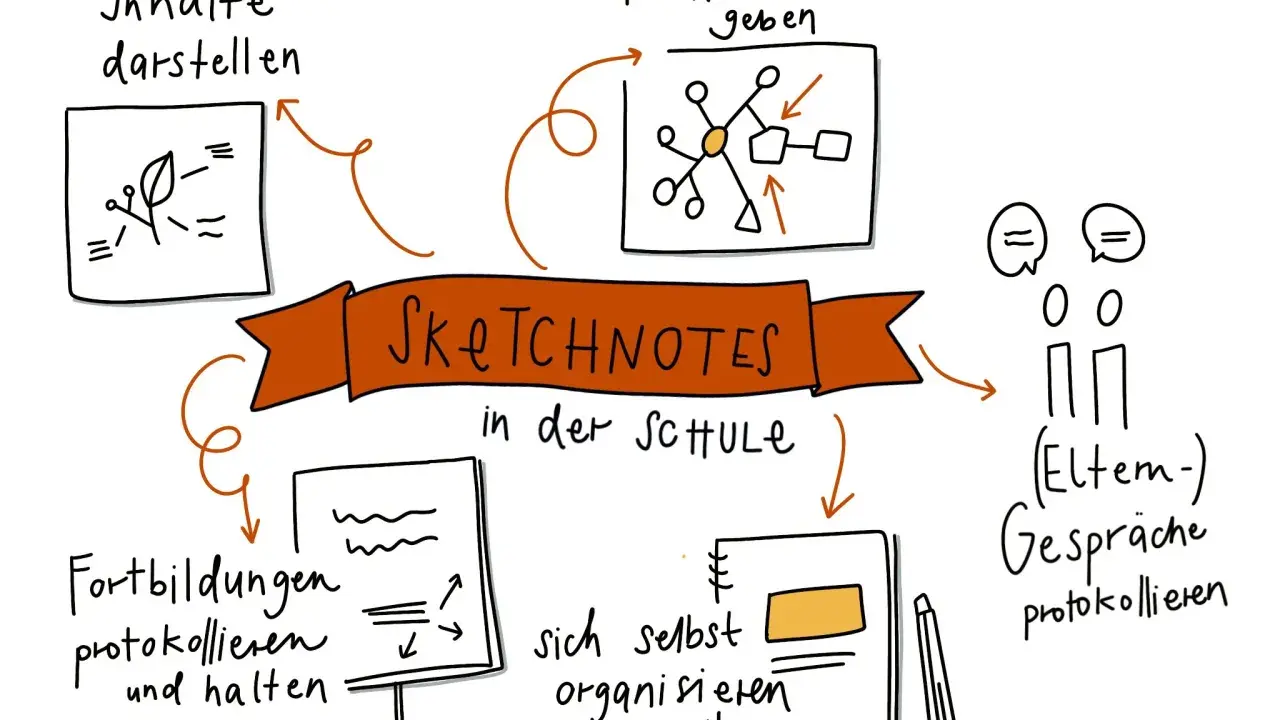 Inhalte
darstellen
geben
SKeTCHNOTES
in der SCHULe
(Eltern-)
Gespräche
protokollieren
Fortbildungen
protokollieren
und halten
sich selbst
organisieren